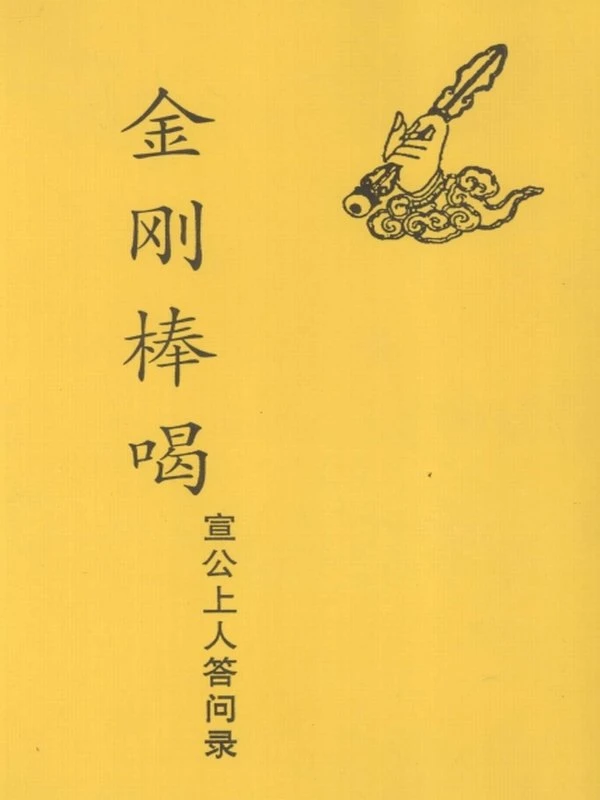 金刚棒喝
宣公上人答问录